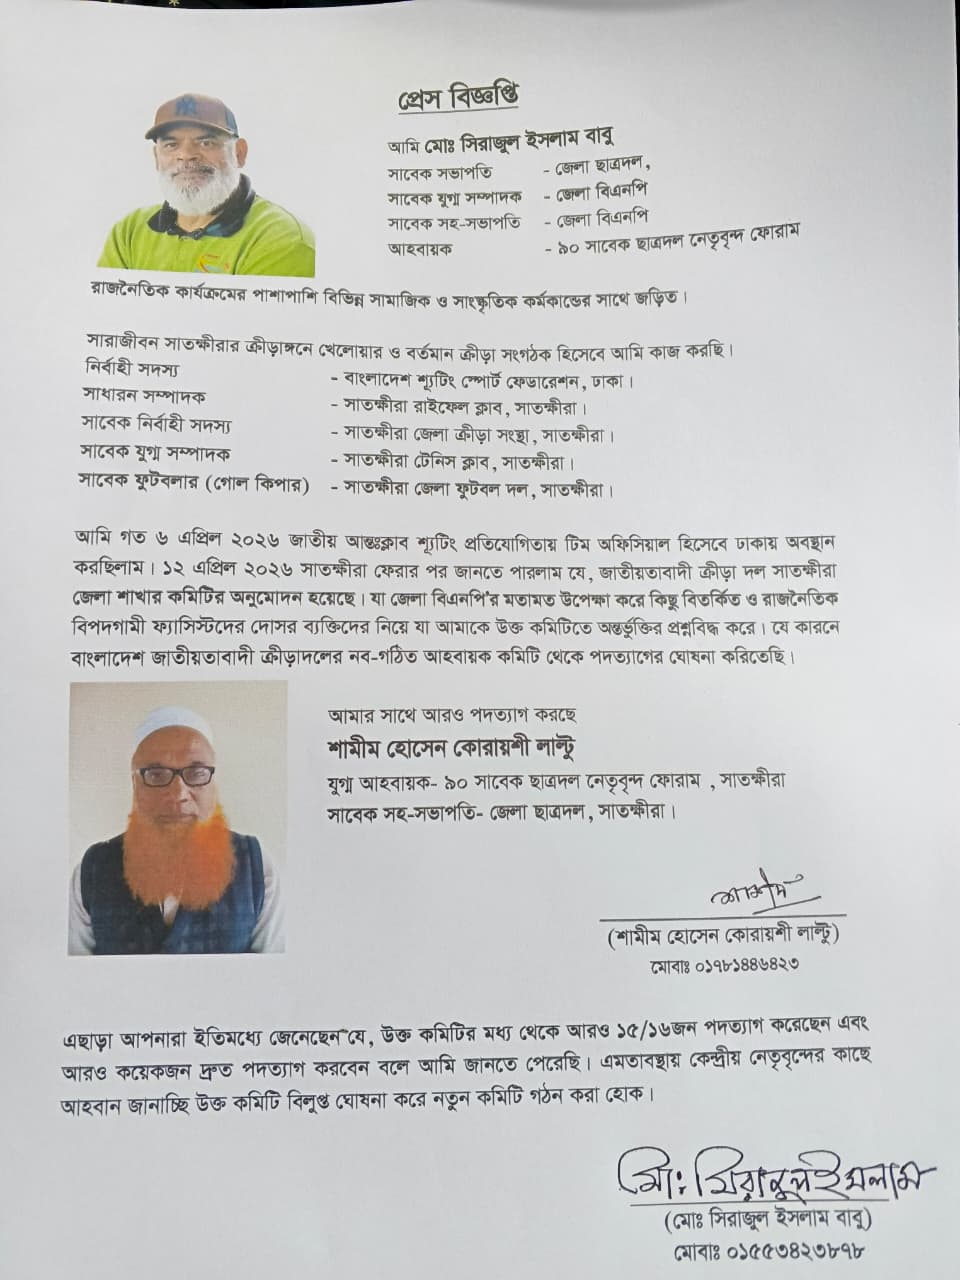 প্রেস বিজ্ঞপ্তি
আমি মোঃ সিরাজুল ইসলাম বাবু
সাবেক সভাপতি - জেলা ছাত্রদল,
সাবেক যুগ্ম সম্পাদক - জেলা বিএনপি
সাবেক সহ-সভাপতি - জেলা বিএনপি
আহবায়ক - ৯০ সাবেক ছাত্রদল নেতৃবৃন্দ ফোরাম
রাজনৈতিক কার্যক্রমের পাশাপাশি বিভিন্ন সামাজিক ও সাংস্কৃতিক কর্মকান্ডের সাথে জড়িত।
সারাজীবন সাতক্ষীরার ক্রীড়াঙ্গনে খেলোয়ার ও বর্তমান ক্রীড়া সংগঠক হিসেবে আমি কাজ করছি।
নির্বাহী সদস্য - বাংলাদেশ শ্যূটিং স্পোর্ট ফেডারেশন, ঢাকা।
সাধারন সম্পাদক - সাতক্ষীরা রাইফেল ক্লাব, সাতক্ষীরা।
সাবেক নির্বাহী সদস্য - সাতক্ষীরা জেলা ক্রীড়া সংস্থা, সাতক্ষীরা।
সাবেক যুগ্ম সম্পাদক - সাতক্ষীরা টেনিস ক্লাব, সাতক্ষীরা।
সাবেক ফুটবলার (গোল কিপার) - সাতক্ষীরা জেলা ফুটবল দল, সাতক্ষীরা।
আমি গত ৬ এপ্রিল ২০২৬ জাতীয় আন্তঃক্লাব শ্যূটিং প্রতিযোগিতায় টিম অফিসিয়াল হিসেবে ঢাকায় অবস্থান
করছিলাম। ১২ এপ্রিল ২০২৬ সাতক্ষীরা ফেরার পর জানতে পারলাম যে, জাতীয়তাবাদী ক্রীড়া দল সাতক্ষীরা
জেলা শাখার কমিটির অনুমোদন হয়েছে। যা জেলা বিএনপি'র মতামত উপেক্ষা করে কিছু বিতর্কিত ও রাজনৈতিক
বিপদগামী ফ্যাসিস্টদের দোসর ব্যক্তিদের নিয়ে যা আমাকে উক্ত কমিটিতে অন্তর্ভুক্তির প্রশ্নবিদ্ধ করে। যে কারনে
বাংলাদেশ জাতীয়তাবাদী ক্রীড়াদলের নব-গঠিত আহবায়ক কমিটি থেকে পদত্যাগের ঘোষনা করিতেছি।
আমার সাথে আরও পদত্যাগ করছে
শামীম হোসেন কোরায়শী লাল্টু
যুগ্ম আহবায়ক- ৯০ সাবেক ছাত্রদল নেতৃবৃন্দ ফোরাম , সাতক্ষীরা
সাবেক সহ-সভাপতি- জেলা ছাত্রদল, সাতক্ষীরা।
(শামীম হোসেন কোরায়শী লাল্টু)
মোবাঃ ০১৭১৪৪৬৪২৩
এছাড়া আপনারা ইতিমধ্যে জেনেছেন যে, উক্ত কমিটির মধ্য থেকে আরও ১৫/১৬জন পদত্যাগ করেছেন এবং
আরও কয়েকজন দ্রুত পদত্যাগ করবেন বলে আমি জানতে পেরেছি। এমতাবস্থায় কেন্দ্রীয় নেতৃবৃন্দের কাছে
আহবান জানাচ্ছি উক্ত কমিটি বিলুপ্ত ঘোষনা করে নতুন কমিটি গঠন করা হোক।
মো: সিরাজুল ইসলাম
(মোঃ সিরাজুল ইসলাম বাবু)
মোবাঃ ০১৫৫৩৪২৩৮৭৮